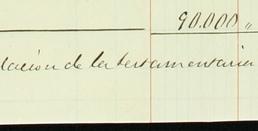 90.000 „
lación de la testamentaria